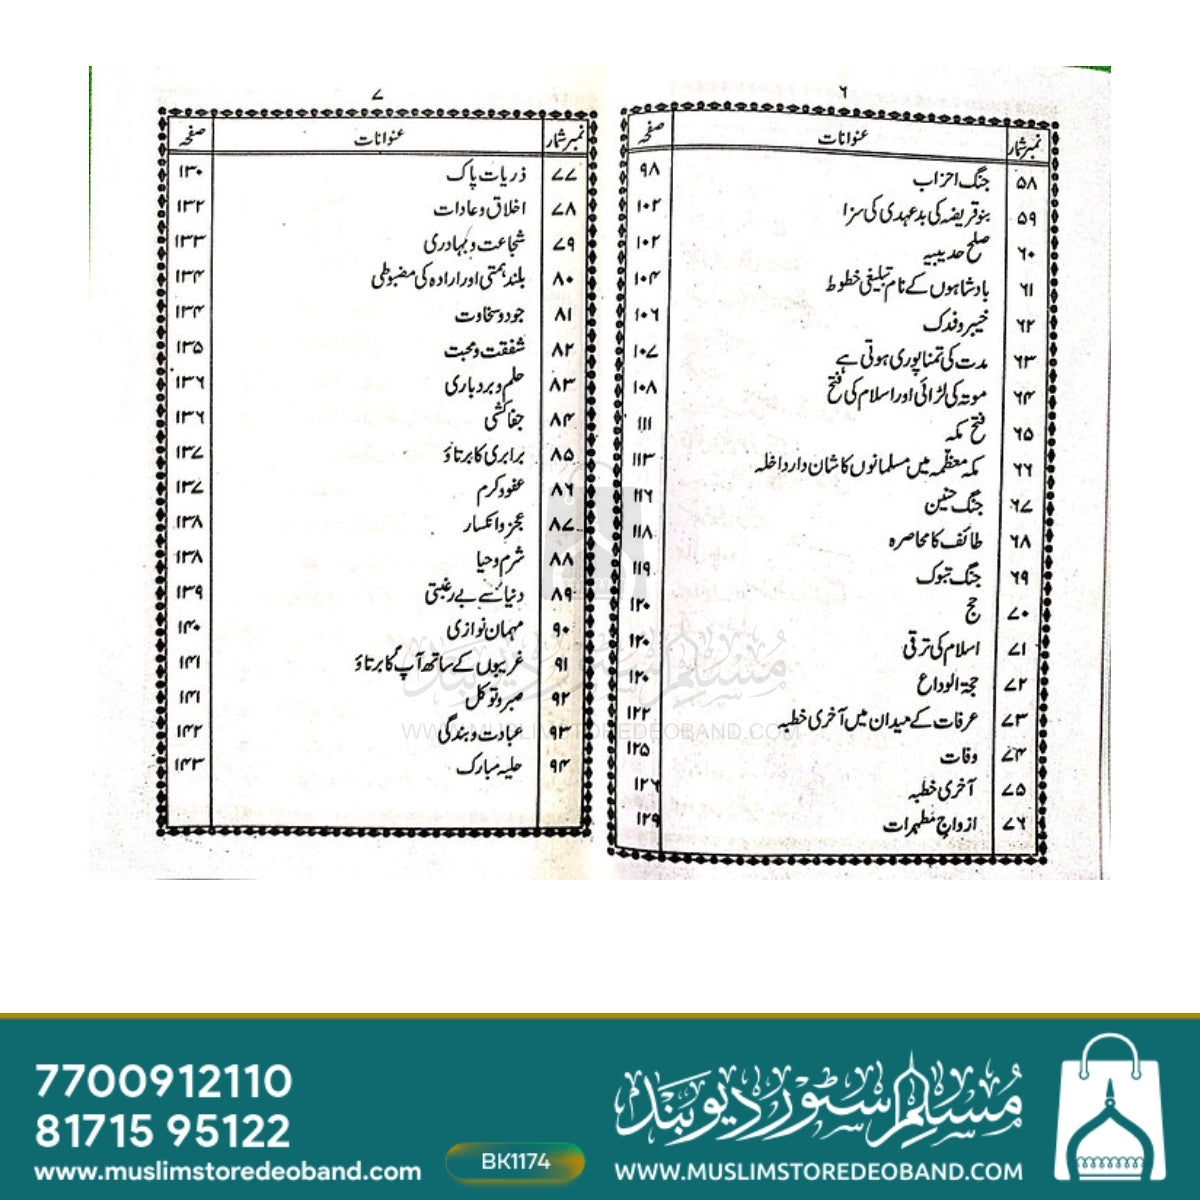 ۶
نمبر شمار عنوانات صفحہ
۵۸ جنگ احزاب ۹۸
۵۹ بنو قریضہ کی بدعہدی کی سزا ۱۰۲
۶۰ صلح حدیبیہ ۱۰۲
۶۱ بادشاہوں کے نام تبلیغی خطوط ۱۰۴
۶۲ خیبر و فدک ۱۰۶
۶۳ مدت کی تمنا پوری ہوتی ہے ۱۰۷
۶۴ موتہ کی لڑائی اور اسلام کی فتح ۱۰۸
۶۵ فتح مکہ ۱۱۱
۶۶ مکہ معظمہ میں مسلمانوں کا شان دار داخلہ ۱۱۳
۶۷ جنگ حنین ۱۱۶
۶۸ طائف کا محاصرہ ۱۱۸
۶۹ جنگ تبوک ۱۱۹
۷۰ حج ۱۲۰
۷۱ اسلام کی ترقی ۱۲۰
۷۲ حجۃ الوداع ۱۲۰
۷۳ عرفات کے میدان میں آخری خطبہ ۱۲۲
۷۴ وفات ۱۲۵
۷۵ آخری خطبہ ۱۲۶
۷۶ ازواج مطہرات ۱۲۹
۷
نمبر شمار عنوانات صفحہ
۷۷ ذریات پاک ۱۳۰
۷۸ اخلاق و عادات ۱۳۲
۷۹ شجاعت و بہادری ۱۳۳
۸۰ بلند ہمتی اور ارادہ کی مضبوطی ۱۳۴
۸۱ جود و سخاوت ۱۳۴
۸۲ شفقت و محبت ۱۳۵
۸۳ حلم و بردباری ۱۳۶
۸۴ جفاکشی ۱۳۶
۸۵ برابری کا برتاؤ ۱۳۷
۸۶ عفو و کرم ۱۳۷
۸۷ عجز و انکسار ۱۳۸
۸۸ شرم و حیا ۱۳۸
۸۹ دنیا سے بے رغبتی ۱۳۹
۹۰ مہمان نوازی ۱۴۰
۹۱ غریبوں کے ساتھ آپؐ کا برتاؤ ۱۴۱
۹۲ صبر و توکل ۱۴۱
۹۳ عبادت و بندگی ۱۴۲
۹۴ حلیہ مبارک ۱۴۳
مسلم سٹور دیوبند
WWW.MUSLIMSTOREDEOBAND.COM
7700912110
81715 95122
www.muslimstoredeoband.com
BK1174
مسلم سٹور دیوبند
WWW.MUSLIMSTOREDEOBAND.COM